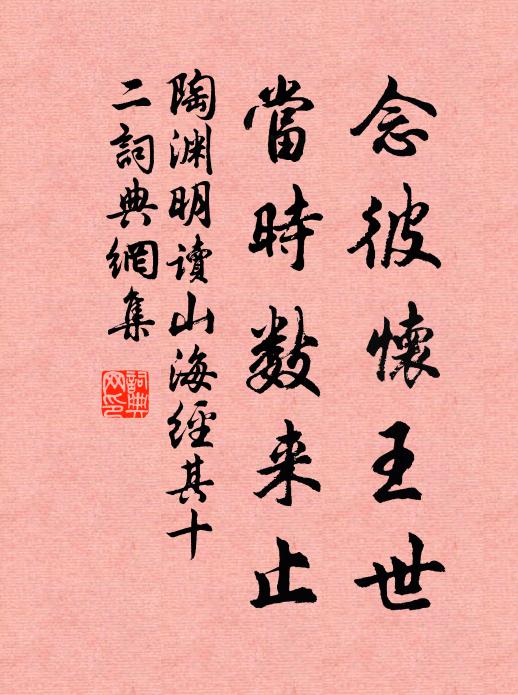 念彼懷王世
當時数来止
陶渊明读山海經其十
二詞典網集
詞典網印